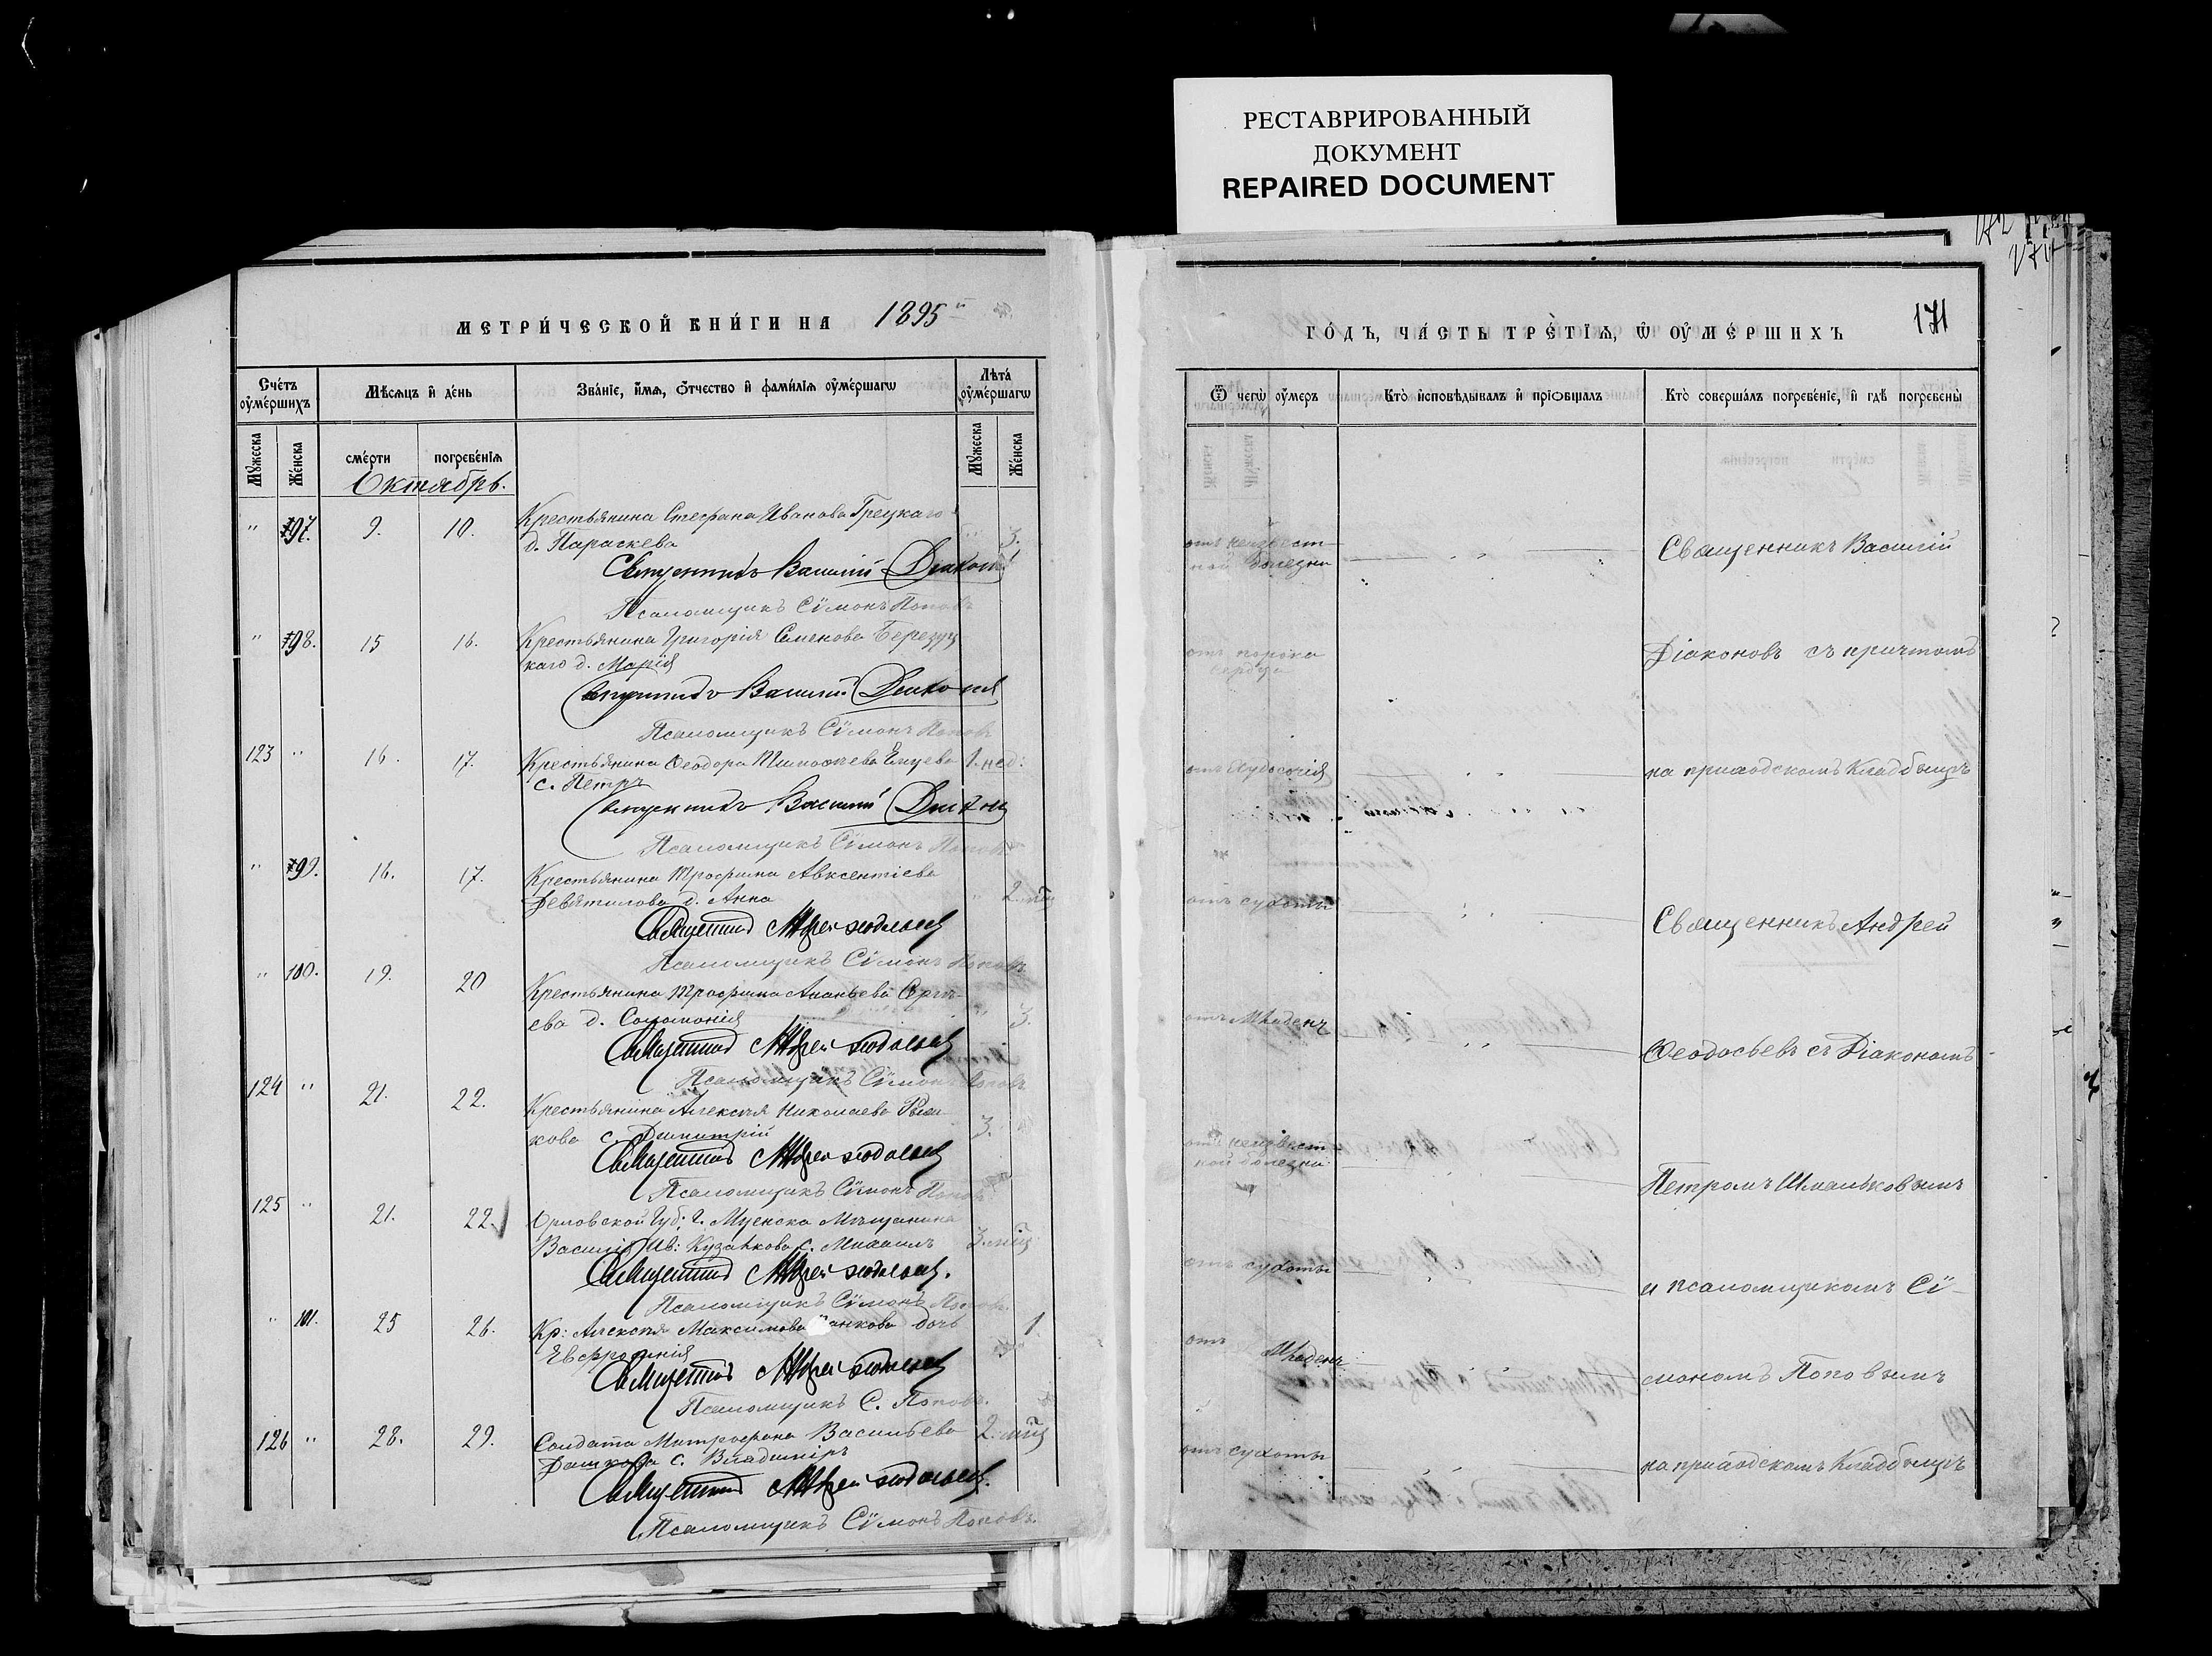 РЕСТАВРИРОВАННЫЙ
ДОКУМЕНТ
REPAIRED DOCUMENT
МЕТРИ́ЧЕСКОЙ КНИ́ГИ НА 1895
Сче́тъ ᲂу҆ме́ршихъ
Мѣсяцъ и҆ де́нь
Зва́нїе, и҆́мѧ, ѻ҆́тчество и҆ фами́лїѧ ᲂу҆ме́ршагѡ
Лѣта̀ ᲂу҆ме́ршагѡ
Мꙋ́жеска
Же́нска
сме́рти
погребе́нїѧ
Мꙋ́жеска
Же́нска
Октябрь.
" 97. 9. 10. Крестьянина Стефана Иванова Грецкаго
д. Параскева 3.
Священникъ Василий Диаконов
Псаломщикъ Сїмонъ Поповъ
" 98. 15 16. Крестьянина Григорія Семенова Березуц
каго д. Марія
Священникъ Василий
Псаломщикъ Сїмонъ Поповъ
123 " 16. 17. Крестьянина Феодора Тимофеева Емцева 1. нед:
с. Петръ
Священникъ Василий
Псаломщикъ Сїмонъ Поповъ
" 99. 16. 17. Крестьянина Трофима Авксентіева
Девятилова д. Анна 2. мц
Священникъ Андрей Феодосьев
Псаломщикъ Сїмонъ Поповъ
" 100. 19. 20 Крестьянина Трофима Ананьева Серге-
ева д. Соломонія 3.
Священникъ Андрей Феодосьев
Псаломщикъ Сїмонъ Поповъ
124 " 21. 22. Крестьянина Алексѣя Николаева
кова с. Димитрій 3.
Священникъ Андрей Феодосьев
Псаломщикъ Сїмонъ Поповъ
125 " 21. 22. Орловской Губ: г. Мценска Мѣщанина
Василія Ив: Кузанкова с. Михаилъ 3. мц
Священникъ Андрей Феодосьев.
Псаломщикъ Сїмонъ Поповъ.
" 101. 25 26. Кр: Алексѣя Максимова анкова дочь 1.
Евфросинія
Священникъ Андрей Феодосьев
Псаломщикъ С. Поповъ.
126 " 28. 29. Солдата Митрофана Васильева 2. мц
Дашкова с. Владиміръ
Священникъ Андрей Феодосьев.
Псаломщикъ Сїмонъ Поповъ.
ГО́ДЪ, ЧА́СТЬ ТРЕ́ТЇѦ, Ѡ҆ ᲂУ҆МЕ́РШИХЪ
171
Ѿ чегѡ̀ ᲂу҆́меръ
Кто̀ и҆сповѣ́дывалъ и҆ прїѡбща́лъ
Кто̀ соверша́лъ погребе́нїе, и҆ гдѣ̀ погребены̀
отъ неизвест-
ной болезни
Священникъ Василій
отъ порока
сердца
Діаконовъ съ причтомъ
отъ Худосочія
на приходскомъ Кладбищѣ
отъ сухоты
Священникъ Андрей
отъ Младенч
Феодосьевъ съ Діакономъ
отъ неизвест
ной болезни
Петромъ Шмальковымъ
отъ сухоты
и псаломщикомъ Сї-
отъ Младенч:
мономъ Поповымъ
отъ сухоты
на приходскомъ Кладбищѣ